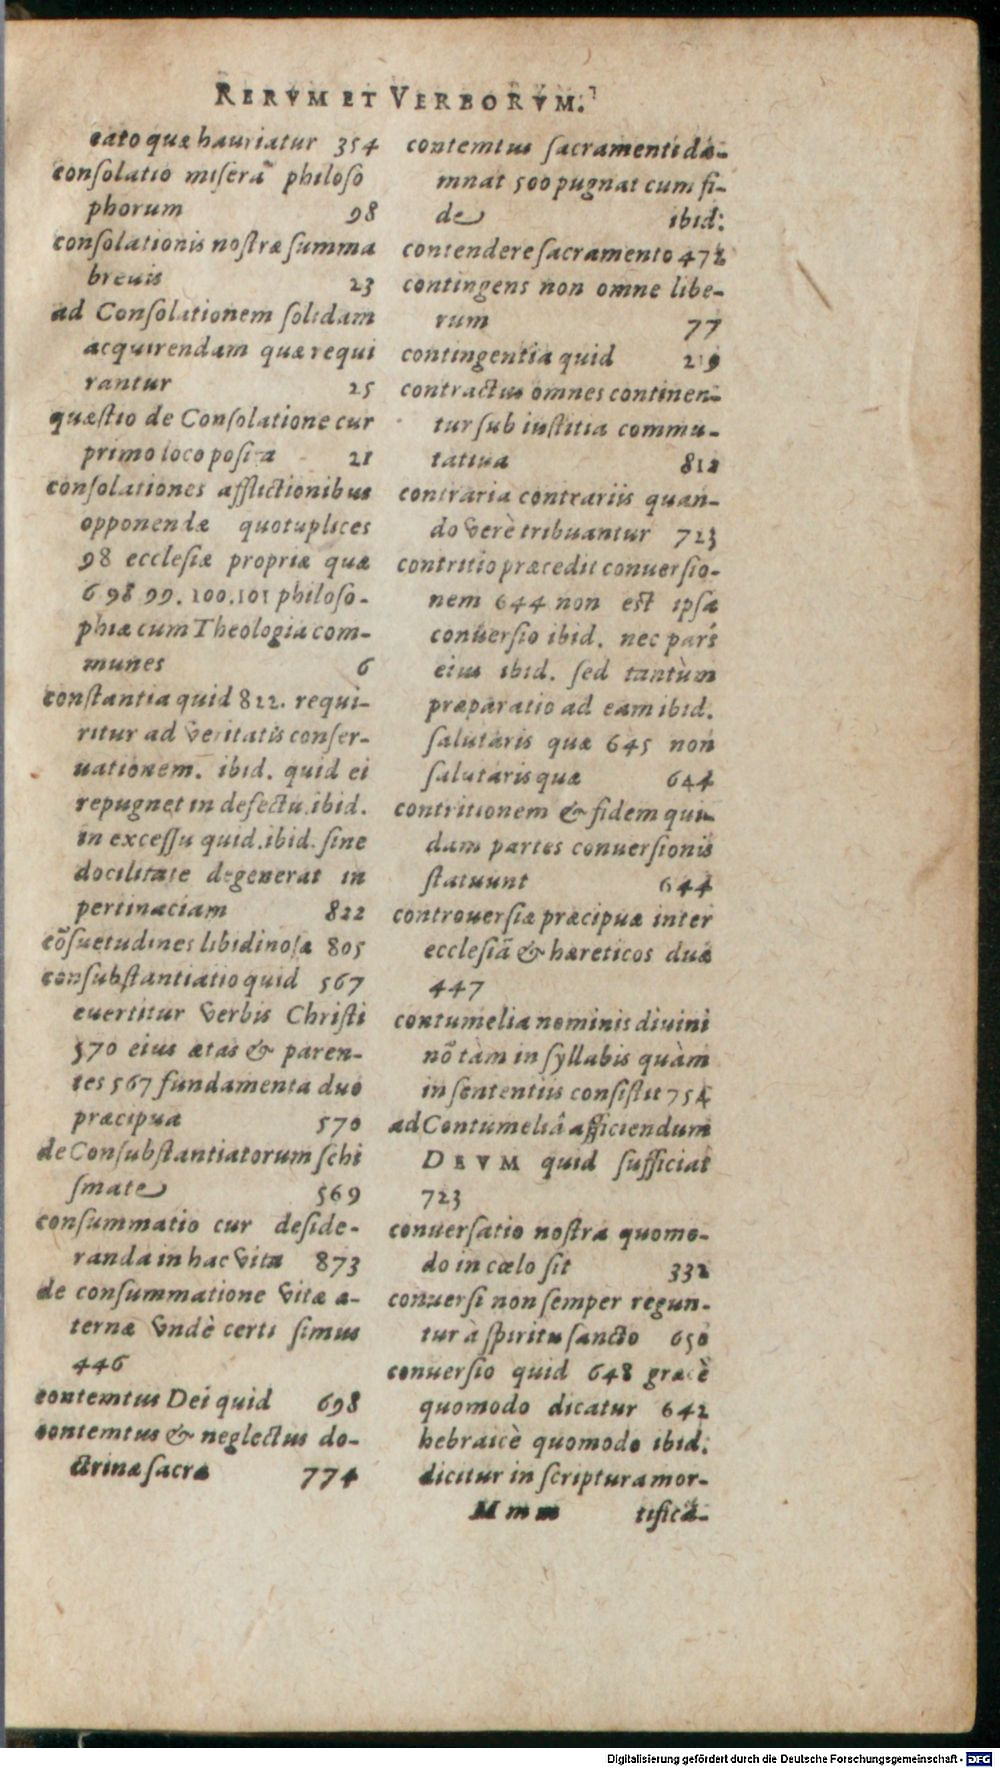 RERVM ET VERBORVM.
cato quæ hauriatur 354
conſolatio miſerā philoſo
phorum 98
conſolationis noſtræ ſumma
breuis 23
ad Conſolationem ſolidam
acquirendam quæ requi
rantur 25
quæſtio de Conſolatione cur
primo loco poſita 21
conſolationes afflictionibus
opponendæ quotuplices
98 eccleſiæ propriæ quæ
6 98 99. 100. 101 philoſo-
phiæ cum Theologia com-
munes 6
conſtantia quid 822. requi-
ritur ad veritatis conſer-
uationem. ibid. quid ei
repugnet in defectu ibid.
in exceſſu quid. ibid. ſine
docilitate degenerat in
pertinaciam 822
cōſuetudines libidinoſæ 805
conſubſtantiatio quid 567
euertitur verbis Chriſti
570 eius ætas & paren-
tes 567 fundamenta duo
præcipua 570
de Conſubſtantiatorum ſchi
ſmate 569
conſummatio cur deſide-
randa in hac vita 873
de conſummatione vitæ æ-
ternæ vndè certi ſimus
446
contemtus Dei quid 698
contemtus & neglectus do-
ctrinæ ſacræ 774
contemtus ſacramenti da-
mnat 500 pugnat cum fi-
de ibid.
contendere ſacramento 472
contingens non omne libe-
rum 77
contingentia quid 219
contractus omnes continen-
tur ſub iuſtitia commu-
tatiua 812
contraria contrariis quan-
do verè tribuantur 723
contritio præcedit conuerſio-
nem 644 non eſt ipſa
conuerſio ibid. nec pars
eius ibid. ſed tantùm
præparatio ad eam ibid.
ſalutaris quæ 645 non
ſalutaris quæ 644
contritionem & fidem qui-
dam partes conuerſionis
ſtatuunt 644
controuerſiæ præcipuæ inter
eccleſiā & hæreticos duæ
447
contumelia nominis diuini
nō tàm in ſyllabis quàm
in ſententiis conſiſtit 754
ad Contumeliâ afficiendum
DEVM quid ſufficiat
723
conuerſatio noſtra quomo-
do in cœlo ſit 332
conuerſi non ſemper regun-
tur à ſpiritu ſancto 650
conuerſio quid 648 græcè
quomodo dicatur 642
hebraicè quomodo ibid.
dicitur in ſcriptura mor-
Mmm tifica-
Digitalisierung gefördert durch die Deutsche Forschungsgemeinschaft - DFG